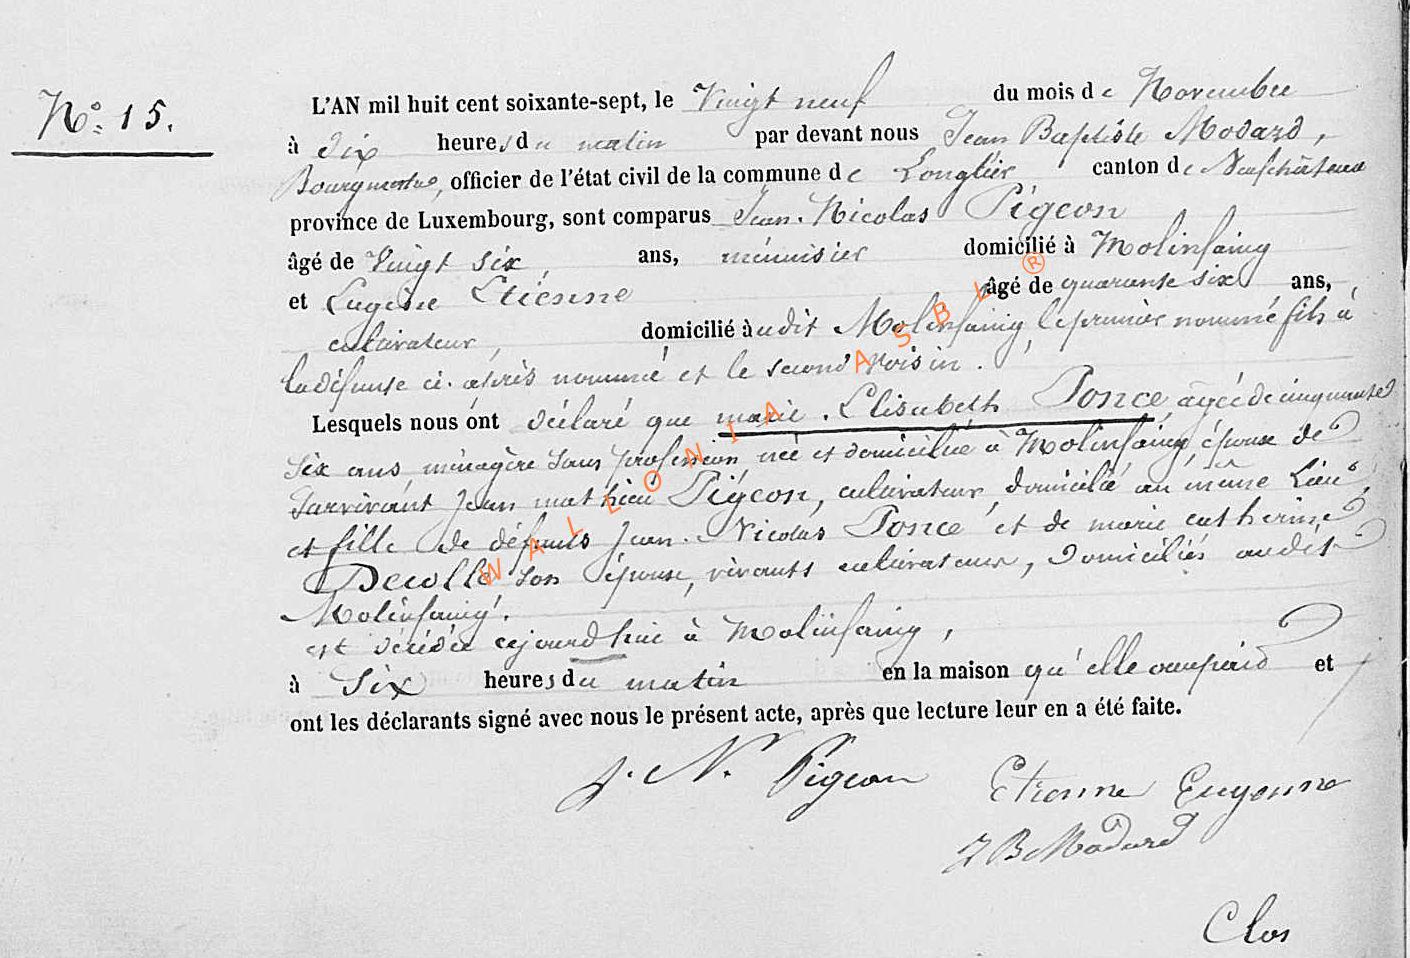 N° 15.
L'AN mil huit cent soixante-sept, le Vingt neuf du mois de Novembre
à dix heures du matin par devant nous Jean Baptiste Modard,
Bourgmestre, officier de l'état civil de la commune de Longlier canton de Neufchâteau
province de Luxembourg, sont comparus Jean. Nicolas Pigeon
âgé de Vingt six, ans, ménuisier domicilié à Molinfaing
et Eugène Etienne âgé de quarante six ans,
cultivateur, domicilié audit Molinfaing, le premier nommé fils à
la défunte ci. après nommée et le second voisin.
Lesquels nous ont déclaré que marie. Elisabeth Ponce, agée de cinquante
six ans, ménagère sans profession, née et domiciliée à Molinfaing, épouse de
survivant Jean mathieu Pigeon, cultivateur, domicilié au même Lieu,
et fille de défunts Jean. Nicolas Ponce et de marie catherine
Decolle son épouse, vivants cultivateurs, domiciliés audit
Molinfaing.
est décédée cejourd'hui à Molinfaing,
à Six heures du matin en la maison qu'elle occupait et
ont les déclarants signé avec nous le présent acte, après que lecture leur en a été faite.
J. N. Pigeon Etienne Eugenne
J B Modard
Clos
WALLONIA ASBL ®